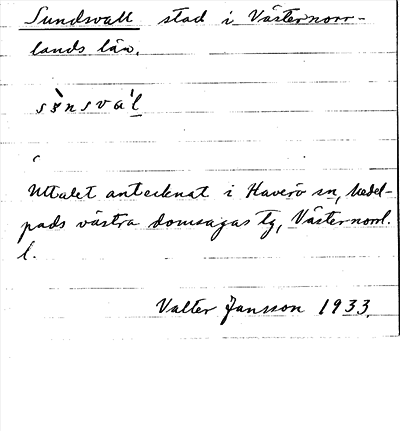 Sundsvall stad i Västernorr-
lands län.
sɜ̀nsvál
Uttalet antecknat i Haverö sn, Medel-
pads västra domsagas tg, Västernorrl.
l.
Valter Jansson 1933.